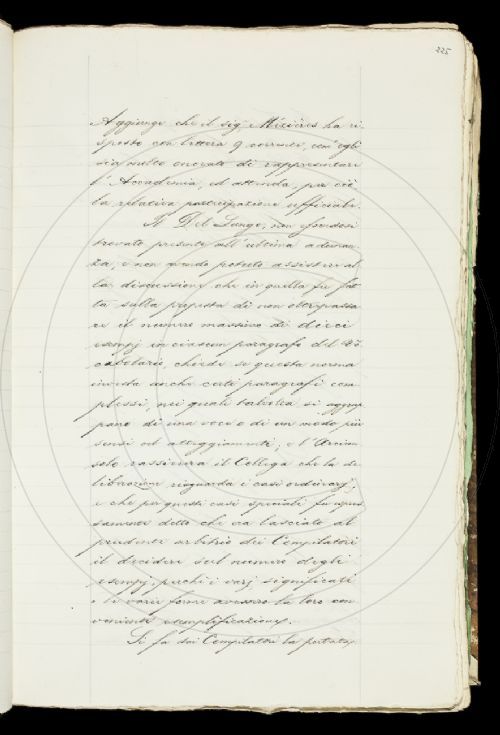 225
Aggiunge che il sig. Mézières ha ri-
sposto con lettera 9 corrente, com' egli
sia molto onorato di rappresentare
l' Accademia, ed attenda, per ciò
la relativa partecipazione ufficiale.
Il Del Lungo, non essendosi
trovato presente all' ultima adunan-
za, e non avendo potuto assistere al-
la discussione che in quella fu fat-
ta sulla proposta di non oltrepassa-
re il numero massimo di dieci
esempj in ciascun paragrafo del Vo-
cabolario, chiede se questa norma
investa anche certi paragrafi com-
plessi, nei quali talvolta si aggrup-
pano di una voce o di un modo più
sensi od atteggiamenti; e l' Arcicon-
solo rassicura il Collega che la de-
liberazione riguarda i casi ordinarj,
e che per questi casi speciali fu espres-
samente detto che era lasciato al
prudente arbitrio dei Compilatori
il decidere sul numero degli
esempj, perché i varj significati
e le varie forme avessero la loro con-
veniente esemplificazione.
Si fa dai Compilatori la